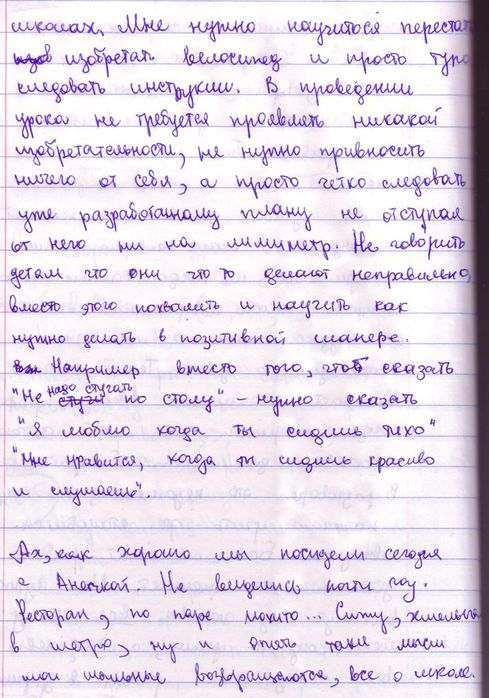 школах. Мне нужно научиться перестать
изобретать велосипед и просто тупо
следовать инструкции. В проведении
урока не требуется проявлять никакой
изобретательности, не нужно привносить
ничего от себя, а просто чётко следовать
уже разработанному плану не отступая
от него ни на миллиметр. Не говорить
детям что они что то делают неправильно,
вместо этого похвалить и научить как
нужно делать в позитивной манере.
Например вместо того, чтоб сказать
"Не надо стучать по столу" – нужно сказать
"Я люблю когда ты сидишь тихо"
"Мне нравится, когда ты сидишь красиво
и слушаешь".
Ах, как хорошо мы посидели сегодня
с Анечкой. Не виделись почти год.
Ресторан, по паре мохито... Сижу, хмельная
в метро, ну и опять таки мысли
мои шальные возвращаются, все о школе.